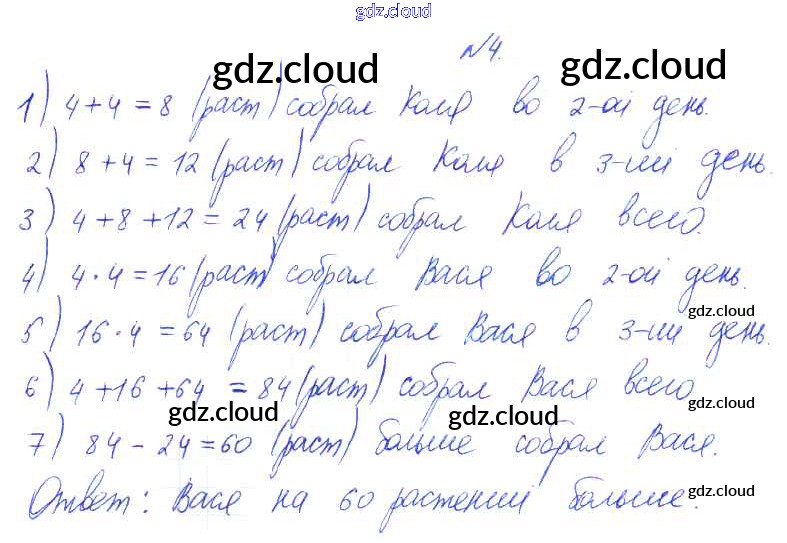 gdz.cloud
№4.
gdz.cloud gdz.cloud
1) 4+4=8 (раст) собрал Коля во 2-ой день.
2) 8+4=12 (раст) собрал Коля в 3-ий день.
3) 4+8+12=24 (раст) собрал Коля всего.
4) 4·4=16 (раст) собрал Вася во 2-ой день.
gdz.cloud
5) 16·4=64 (раст) собрал Вася в 3-ий день.
6) 4+16+64=84 (раст) собрал Вася всего
gdz.cloud gdz.cloud gdz.cloud
7) 84-24=60 (раст) больше собрал Вася.
Ответ: Вася на 60 растений больше.
gdz.cloud